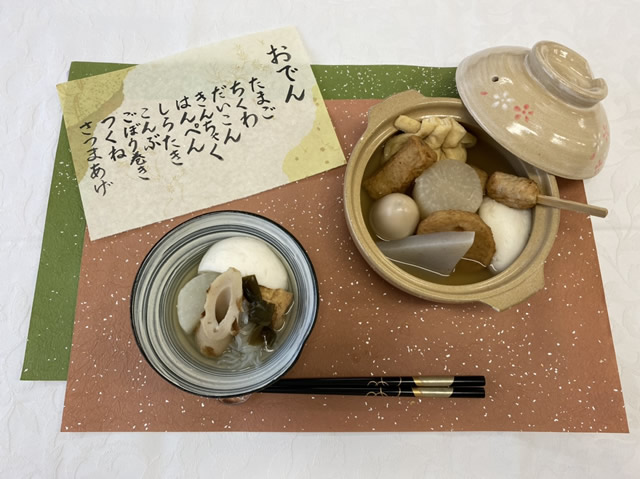 おでん
たまご
ちくわ
だいこん
きんちゃく
はんぺん
しらたき
こんぶ
ごぼう巻き
つくね
さつまあげ